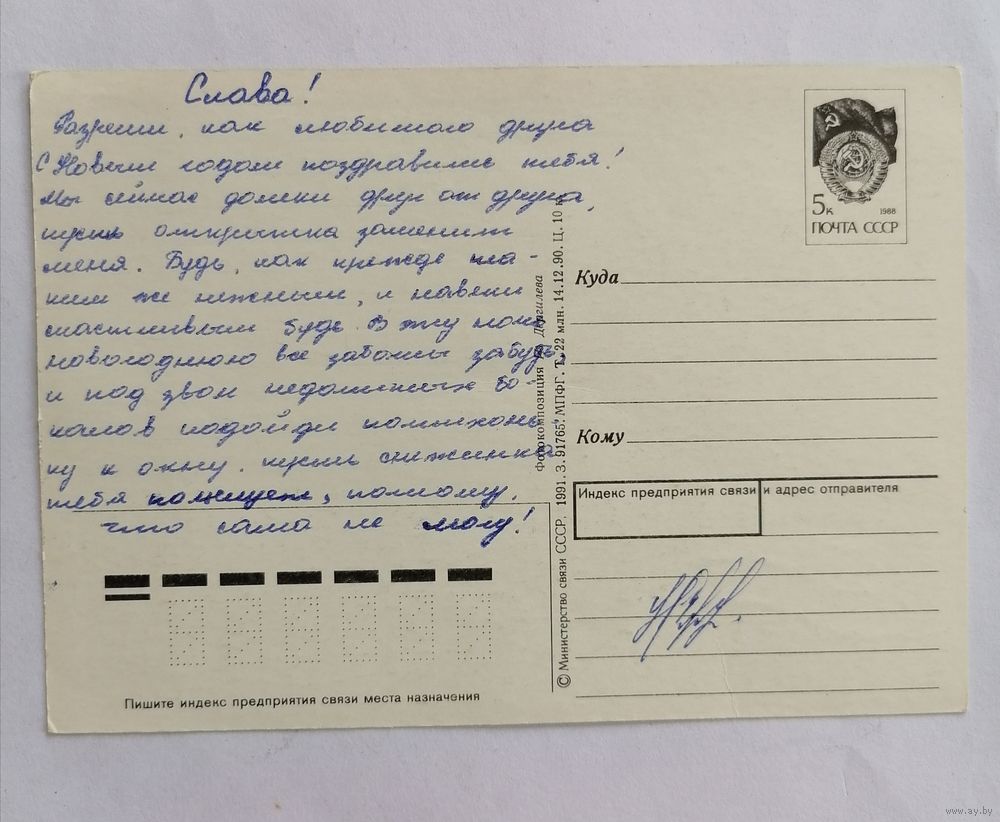 Слава!
Разреши, как любимого друга
С Новым годом поздравить тебя!
Мы сейчас далеки друг от друга,
пусть открытка заменит
меня. Будь, как прежде та-
ким же нежным, и навеки
счастливым будь. В эту ночь
новогоднюю все заботы забудь,
и под звон недопитых бо-
калов подойди потихонь-
ку к окну. пусть снежинка
тебя поцелует, потому,
что сама не могу!
Пишите индекс предприятия связи места назначения
Фотокомпозиция Дергилева
© Министерство связи СССР. 1991. З. 91765. МПФГ. Т. 22 млн. 14.12.90. Ц. 10 к.
5к 1988
ПОЧТА СССР
Куда
Кому
Индекс предприятия связи и адрес отправителя
www.ay.by